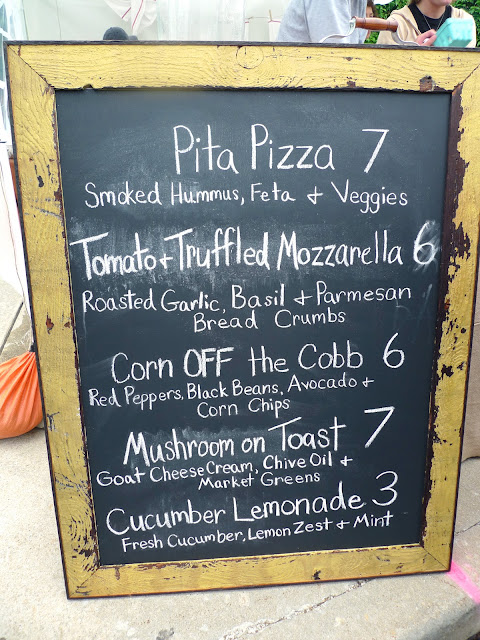 Pita Pizza 7
Smoked Hummus, Feta + Veggies
Tomato + Truffled Mozzarella 6
Roasted Garlic, Basil + Parmesan
Bread Crumbs
Corn OFF the Cobb 6
Red Peppers, Black Beans, Avocado +
Corn Chips
Mushroom on Toast 7
Goat Cheese Cream, Chive Oil +
Market Greens
Cucumber Lemonade 3
Fresh Cucumber, Lemon Zest + Mint